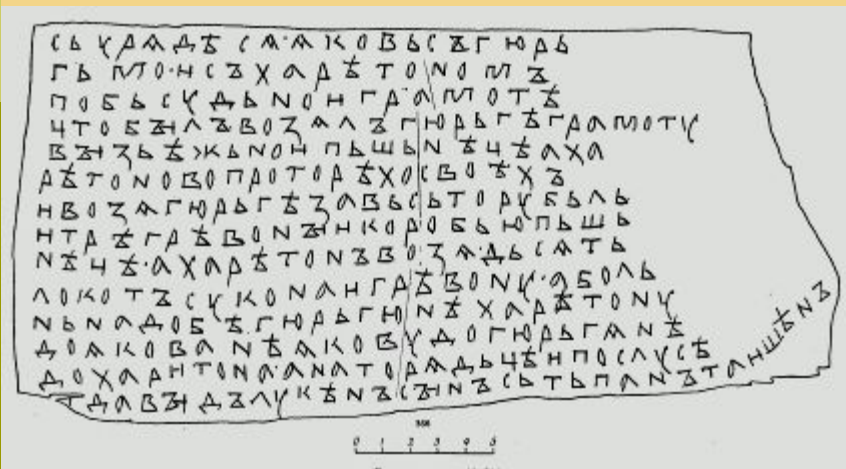 СЬ УРѦДѢСѦ·ѦКОВЬ СЪ ГЮРЬ
ГЬ МО·И СЪ ХАРѢТОНОМЪ
ПО БЬСУДЬНОИ ГРАМОТѢ
ЦТО БЪІЛЪ ВОЗѦЛЪ ГЮРЬГѢ ГРАМОТУ
ВЪІЗЬѢЖЬНОИ ПЬШЬНѢЦѢ А ХА
РѢТОНО ВО ПРОТОРѢХО СВОѢХЪ
И ВОЗѦ ГЮРЬГѢ ЗА ВЬСЬ ТО РУБЬЛЬ
И ТРѢ ГРѢВОНЪІ И КОРОБЬЮ ПЬШЬ
НѢЦѢ·А ХАРѢТОНЪ ВОЗѦ·ДЬСѦТЬ
ЛОКОТЪ СУКОНА И ГРѢВОНУ·А БОЛЬ
НЬ НАДОБѢ·ГЮРЬГЮ НѢ ХАРѢТОНУ
ДО ѦКОВА НѢ ѦКОВУ ДО ГЮРЬГА НѢ
ДО ХАРИТОНА·А НА ТО РѦДЬЦѢ И ПОСЛУСѢ
ТДАВЪІДЪ ЛУКѢНЪ СЪІНЪ СЬТЬПАНЪ ТАИШѢНЪ
0 1 2 3 4 5